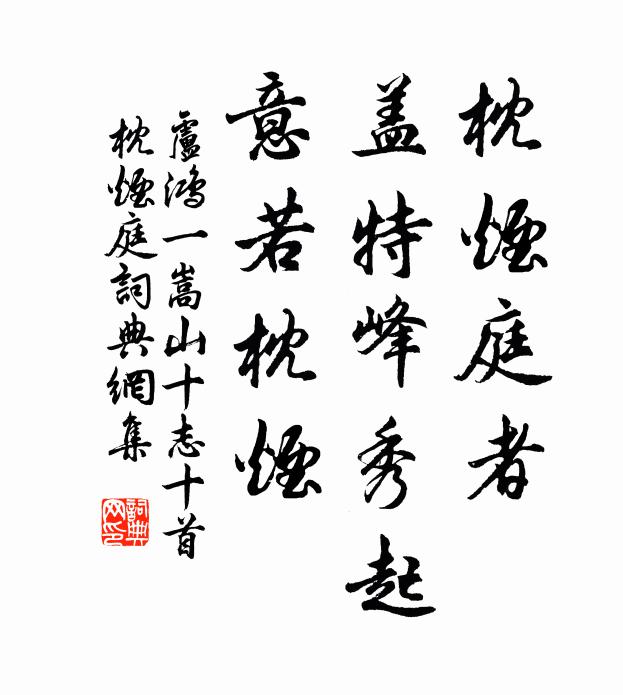 枕煙庭者
盖特峰秀起
意若枕煙
盧鴻一嵩山十志十首
枕煙庭詞典網集
詞典网印